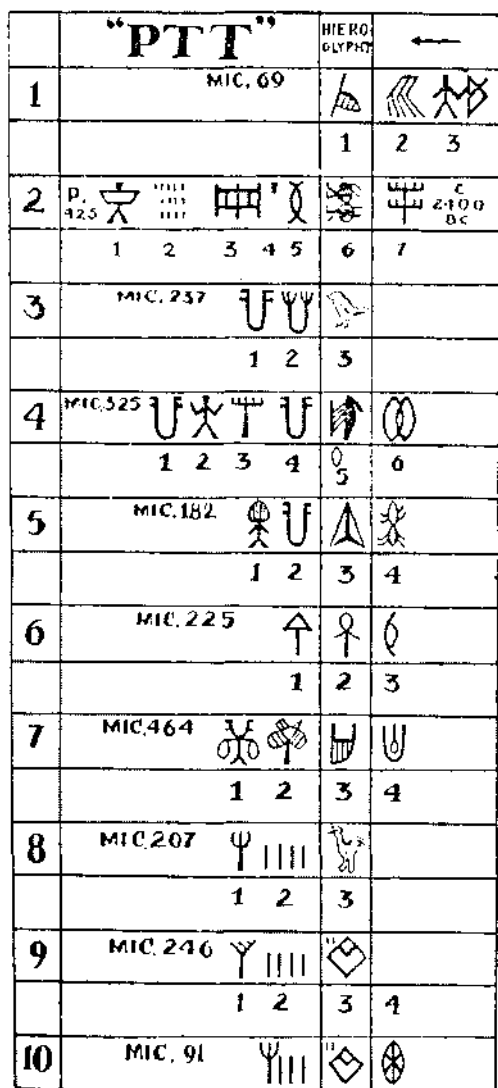 "PTT" HIERO GLYPHS ←
1 MIC. 69
1 2 3
2 P. 425 C 2400 BC
1 2 3 4 5 6 7
3 MIC. 237
1 2 3
4 MIC. 325
1 2 3 4 5 6
5 MIC. 182
1 2 3 4
6 MIC. 225
1 2 3
7 MIC. 464
1 2 3 4
8 MIC. 207
1 2 3
9 MIC. 246
1 2 3 4
10 MIC. 91